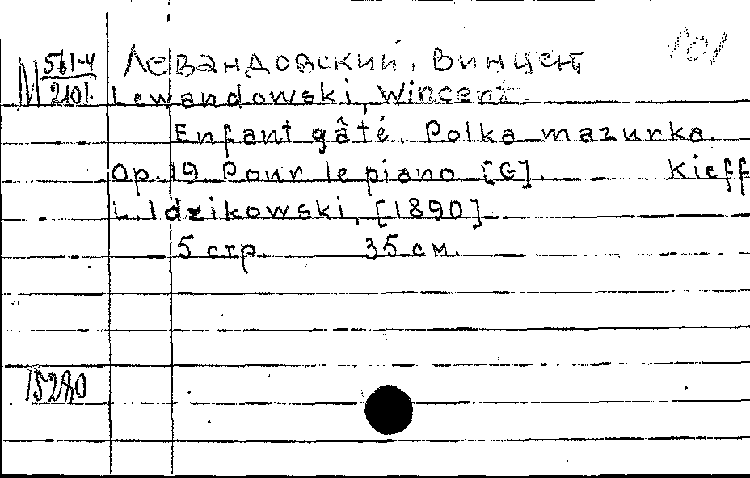 Левандовский, Винцент
М 561-4
2101
Lewandowski, Wincent.
Enfant gâté. Polka mazurka.
Op. 19 Pour le piano [G]. Kieff
L. Idzikowski, [1890].
5 стр. 35 см.
15280